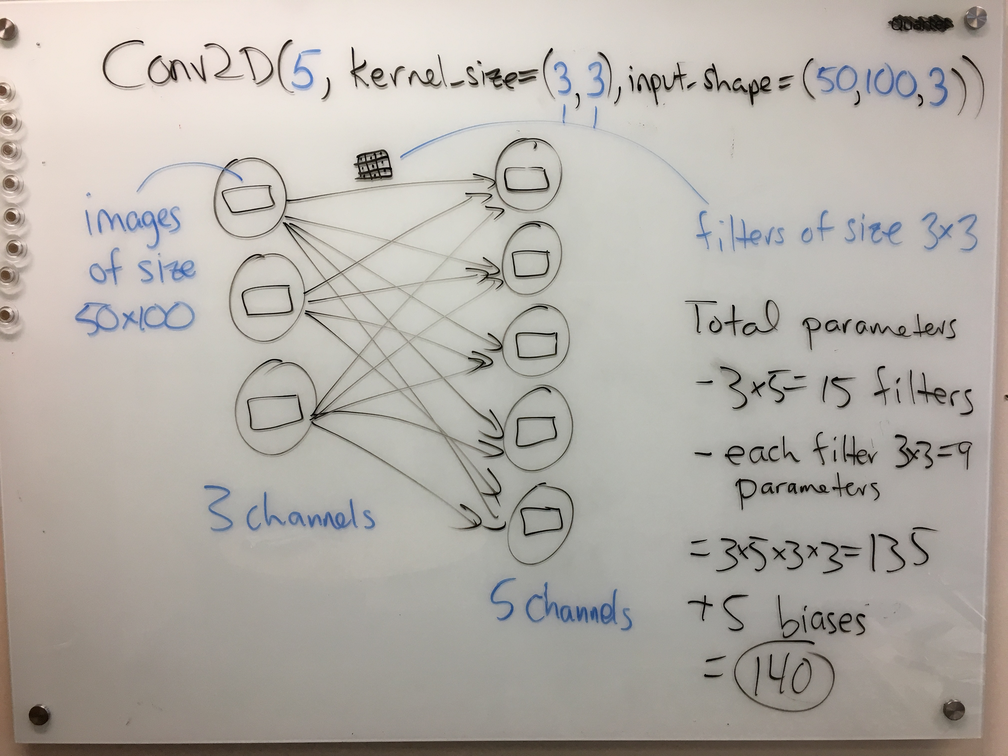 Conv2D(5, kernel_size=(3,3), input_shape=(50,100,3))
images
of size
50x100
filters of size 3x3
3 channels
5 channels
Total parameters
- 3x5=15 filters
- each filter 3x3=9
parameters
=3x5x3x3=135
+5 biases
=140